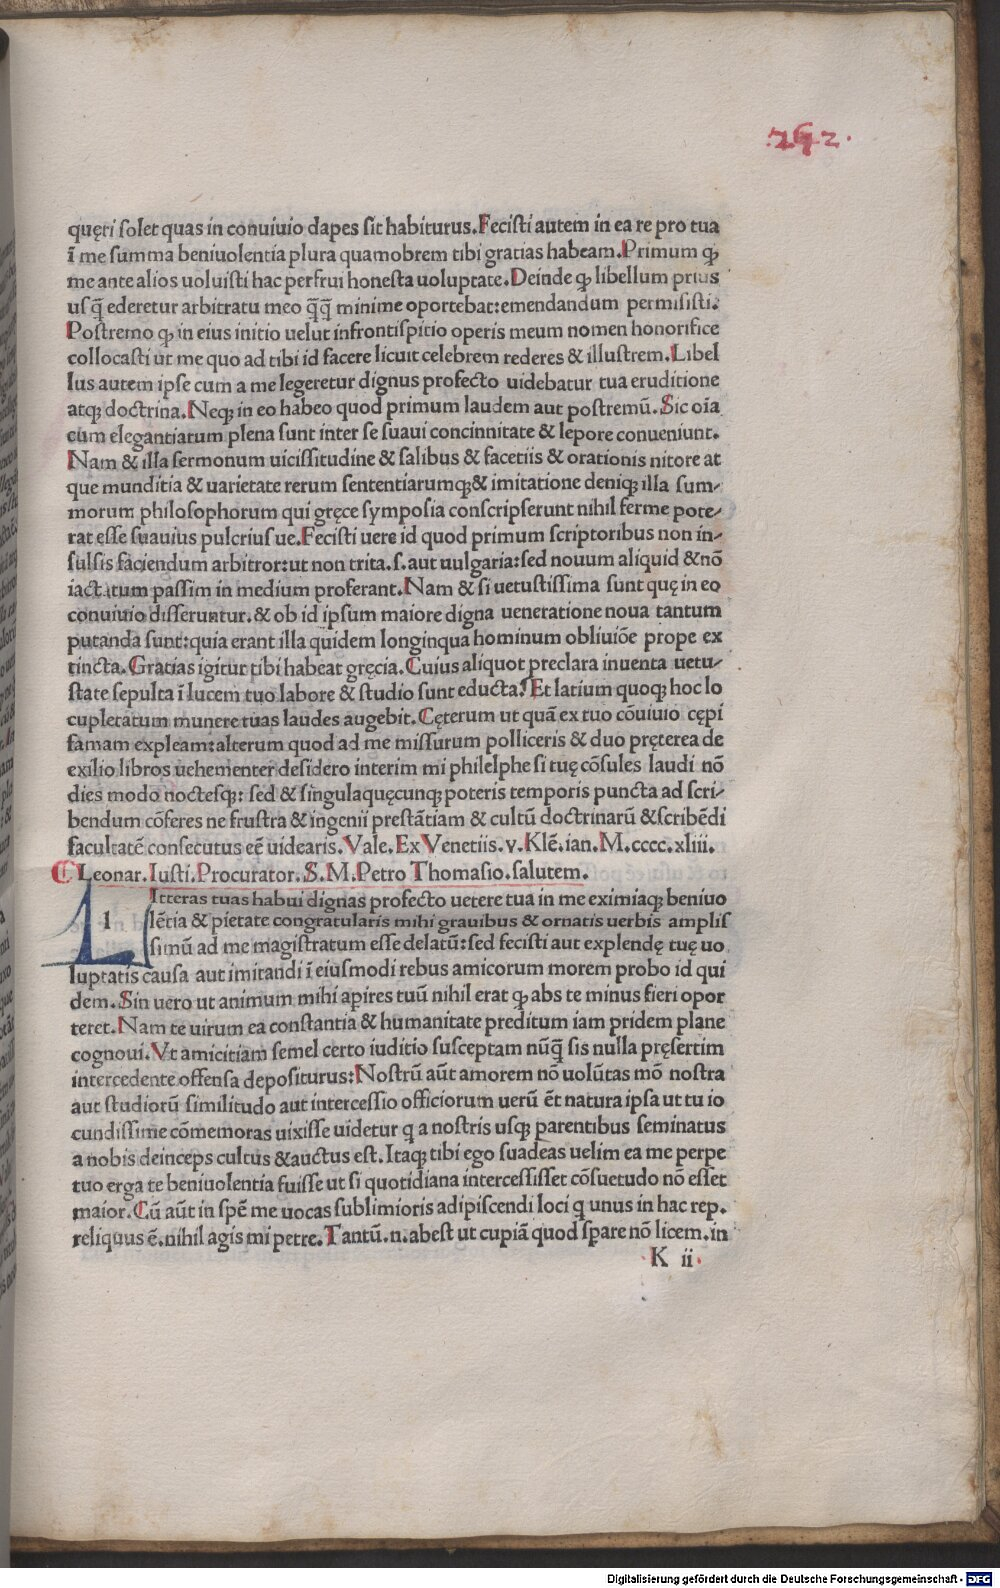 .262.
quęri solet quas in conuiuio dapes sit habiturus.Fecisti autem in ea re pro tua
ī me summa beniuolentia plura quamobrem tibi gratias habeam.Primum ꝙ
me ante alios uoluisti hac perfrui honesta uoluptate.Deinde ꝙ libellum prius
usq̄ ederetur arbitratu meo q̄q̄ minime oportebat:emendandum permisisti.
Postremo ꝙ in eius initio uelut infrontispitio operis meum nomen honorifice
collocasti ut me quo ad tibi id facere licuit celebrem rederes & illustrem.Libel
lus autem ipse cum a me legeretur dignus profecto uidebatur tua eruditione
atqꝫ doctrina.Neqꝫ in eo habeo quod primum laudem aut postremū.Sic oīa
cum elegantiarum plena sunt inter se suaui concinnitate & lepore conueniunt.
Nam & illa sermonum uicissitudine & salibus & facetiis & orationis nitore at
que munditia & uarietate rerum sententiarumqꝫ& imitatione deniqꝫ illa sum-
morum philosophorum qui gręce symposia conscripserunt nihil ferme pote-
rat esse suauius pulcrius ue.Fecisti uere id quod primum scriptoribus non in-
sulsis faciendum arbitror:ut non trita.s.aut uulgaria:sed nouum aliquid &nō
iactatum passim in medium proferant.Nam & si uetustissima sunt quę in eo
conuiuio disseruntur.& ob id ipsum maiore digna ueneratione noua tantum
putanda sunt:quia erant illa quidem longinqua hominum obliuiōe prope ex
tincta.Gratias igitur tibi habeat gręcia.Cuius aliquot preclara inuenta uetu-
state sepulta ī lucem tuo labore & studio sunt educta.Et latium quoqꝫ hoc lo
cupletatum munere tuas laudes augebit.Cęterum ut quā ex tuo cōuiuio cępi
famam expleam:alterum quod ad me missurum polliceris & duo pręterea de
exilio libros uehementer desidero interim mi philelphe si tuę cōsules laudi nō
dies modo noctesqꝫ: sed & singula quęcunqꝫ poteris temporis puncta ad scri-
bendum cōferes ne frustra & ingenii prestātiam & cultū doctrinarū &scribēdi
facultatē consecutus eē uidearis.Vale.Ex Venetiis.v.Klē.ian.M.cccc.xliii.
Leonar.Iusti.Procurator.S.M.Petro Thomasio.salutem.
l Itteras tuas habui dignas profecto uetere tua in me eximiaqꝫ beniuo
lētia & pietate congratularis mihi grauibus & ornatis uerbis amplis
simū ad me magistratum esse delatū:sed fecisti aut explendę tuę uo
luptatis causa aut imitandi ī eiusmodi rebus amicorum morem probo id qui
dem.Sin uero ut animum mihi apires tuū nihil erat ꝙ abs te minus fieri opor
teret.Nam te uirum ea constantia & humanitate preditum iam pridem plane
cognoui.Vt amicitiam semel certo iuditio susceptam nūq̄ sis nulla pręsertim
intercedente offensa depositurus:Nostrū aūt amorem nō uolūtas mō nostra
aut studiorū similitudo aut intercessio officiorum uerū ēt natura ipsa ut tu io
cundissime cōmemoras uixisse uidetur q a nostris usqꝫ parentibus seminatus
a nobis deinceps cultus &auctus est.Itaqꝫ tibi ego suadeas uelim ea me perpe
tuo erga te beniuolentia fuisse ut si quotidiana intercessisset cōsuetudo nō esset
maior.Cū aūt in spē me uocas sublimioris adipiscendi loci q unus in hac rep.
reliquus ē.nihil agis mi petre.Tantū.n.abest ut cupiā quod sꝑare nō licem.in
K ii.
Digitalisierung gefördert durch die Deutsche Forschungsgemeinschaft - DFG